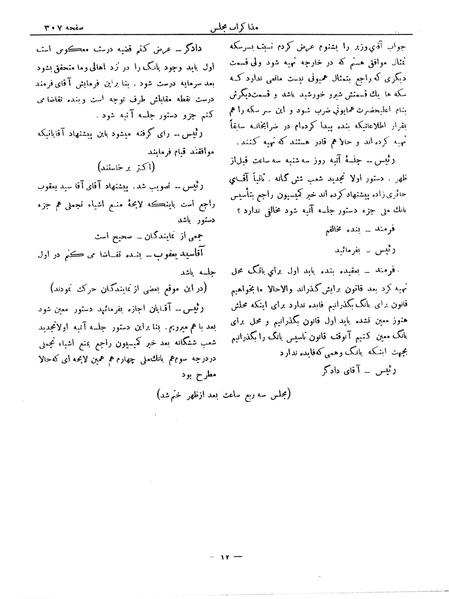 مذاکرات مجلس
صفحه ۳۰۷
جواب آقای وزیر را بشنوم عرض کردم نسبت بسرسکه
تمثال موافق هستم که در خارجه تهیه شود ولی قسمت
دیگری که راجع بتمثال همیونی نیست مانعی ندارد که
سکه ها یك قسمتش شیرو خورشید باشد و قسمت دیگرش
بنام اعلیحضرت همایونی ضرب شود و این سر سکه را هم
بقرار اطلاعاتیکه بنده پیدا کرده‌ام در ضرابخانه سابقاً
تهیه کرده اند و حالا هم قادر هستند که تهیه کنند.
رئیس ــ جلسهٔ آتیه روز سه شنبه سه ساعت قبل از
ظهر. دستور اولا تجدید شعب شش گانه. ثانیاً آقای
حائری زاده پیشنهاد کرده اند خبر کمیسیون راجع بتأسیس
بانك ملی جزء دستور جلسه آتیه شود مخالفی ندارد ؟
فرمند ــ بنده مخالفم
رئیس ــ بفرمائید
فرمند ــ بعقیده بنده باید اول برای بانك محل
تهیه کرد بعد قانون برایش گذراند والا حالا ما بخواهیم
قانون برای بانك بگذرانیم فایده ندارد برای اینکه محلش
هنوز معین نشده باید اول قانون بگذرانیم و محل برای
بانك معین کنیم آنوقت قانون تأسیس بانك را بگذرانیم
بجهت اینکه بانك وهمی که فایده ندارد
رئیس ــ آقای دادگر
دادگر ــ عرض کنم قضیه درست معکوس است
اول باید وجود بانك را در نزد اهالی وما متحقق بشود
بعد سرمایه درست شود. بنا براین فرمایش آقای فرمند
درست نقطه مقابلش طرف توجه است و بنده تقاضا می
کنم جزو دستور جلسه آتیه شود
رئیس ــ رأی گرفته میشود باین پیشنهاد آقایانیکه
موافقند قیام فرمایند
(اکثر برخاستند)
رئیس ــ تصویب شد. پیشنهاد آقای آقا سید یعقوب
راجع است باینکه لایحهٔ منع اشیاء تجملی هم جزء
دستور باشد
جمعی از نمایندگان ــ صحیح است
آقاسید یعقوب ــ بنده تقاضا می کنم در اول
جلسه باشد
(در این موقع بعضی از نمایندگان حرکت نمودند)
رئیس ــ آقایان اجازه بفرمائید دستور معین شود
بعد با هم میرویم. بنا براین دستور جلسه آتیه اولا تجدید
شعب ششگانه بعد خبر کمیسیون راجع بمنع اشیاء تجملی
در درجه سوم هم بانك ملی چهارم هم همین لایحه ای که حالا
مطرح بود
(مجلس سه ربع ساعت بعد از ظهر ختم شد)
ــ ۱۲ ــ